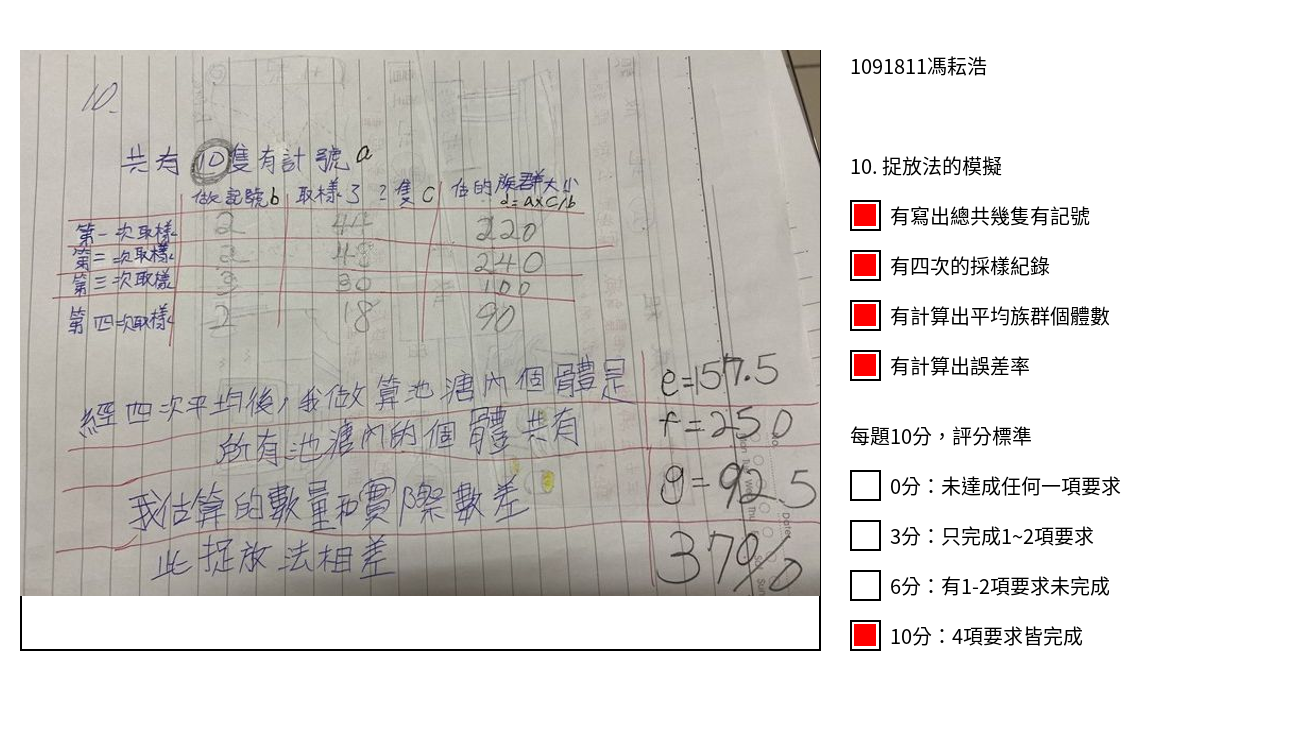 10.
共有⑩隻有計號a
做記號b 取樣了?隻C 估的族群大小
d=a×c/b
第一次取樣 2 44 220
第二次取樣 2 48 240
第三次取樣 3 30 100
第四次取樣 2 18 90
經四次平均後,我做算池溏內個體是 e=157.5
所有池溏內的個體共有 f=250
我估算的數量和實際數差 g=92.5
此捉放法相差 37%
1091811馮耘浩
10. 捉放法的模擬
有寫出總共幾隻有記號
有四次的採樣紀錄
有計算出平均族群個體數
有計算出誤差率
每題10分,評分標準
0分:未達成任何一項要求
3分:只完成1~2項要求
6分:有1-2項要求未完成
10分:4項要求皆完成